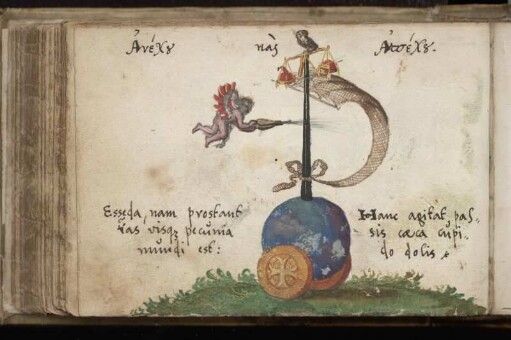 Ἀνέχȣ καὶ Ἀπέχȣ.
Esseda, nam prostant
fas visq3 pecunia
mundi est:
Hanc agitat pas-
sis cæca cupi-
do dolis